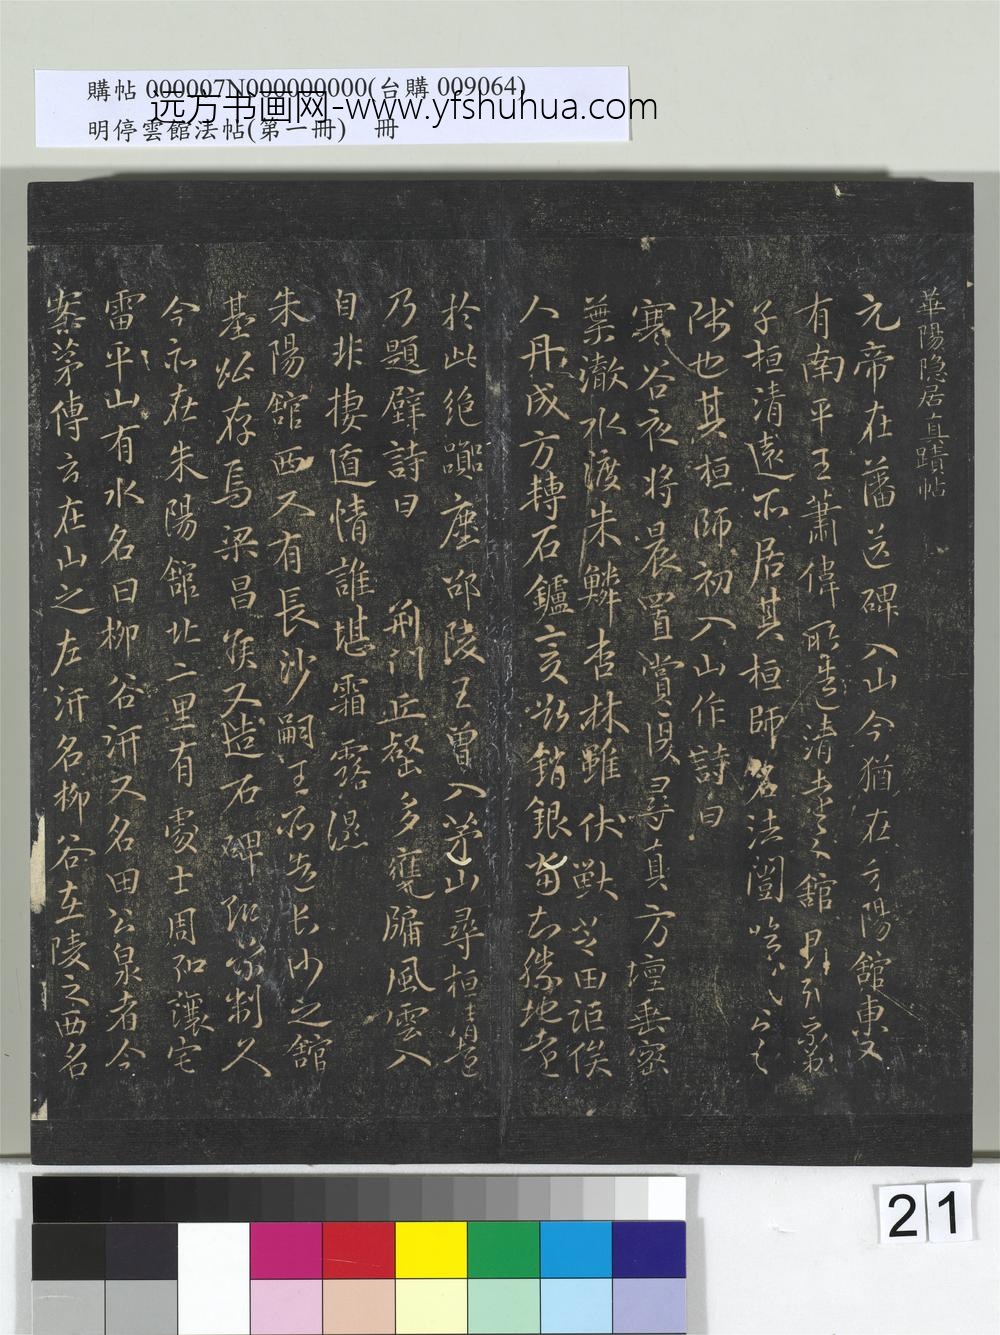 購帖 000007N000000000(台購 009064)
远方书画网-www.yfshuhua.com
明停雲館法帖(第一冊) 冊
華陽隐居真蹟帖
元帝在藩送碑入山今猶在方陽館東又
有南平王蕭偉所造清遠之館
子桓清遠不居其桓師名法闓
也其桓師初入山作詩曰
寒谷夜將晨置賞復尋真方壇垂密
葉澈水渡朱鱗杏林雖伏獸芝田詎俟
人丹成方轉石鑪變欲銷銀當知勝地遠
於此絶囂塵邵陵王曾入茅山尋桓清遠
乃題壁詩曰 荊門丘壑多甕牖風雲入
自非棲遁情誰堪霜露濕
朱陽館西又有長沙嗣王所造長沙之館
基始存焉梁昌侯又造石碑 制文
今亦在朱陽館北二里有處士周弘讓宅
雷平山有水名曰柳谷汧又名田公泉者今
案茅傳云在山之左汧名柳谷在陵之西名
21